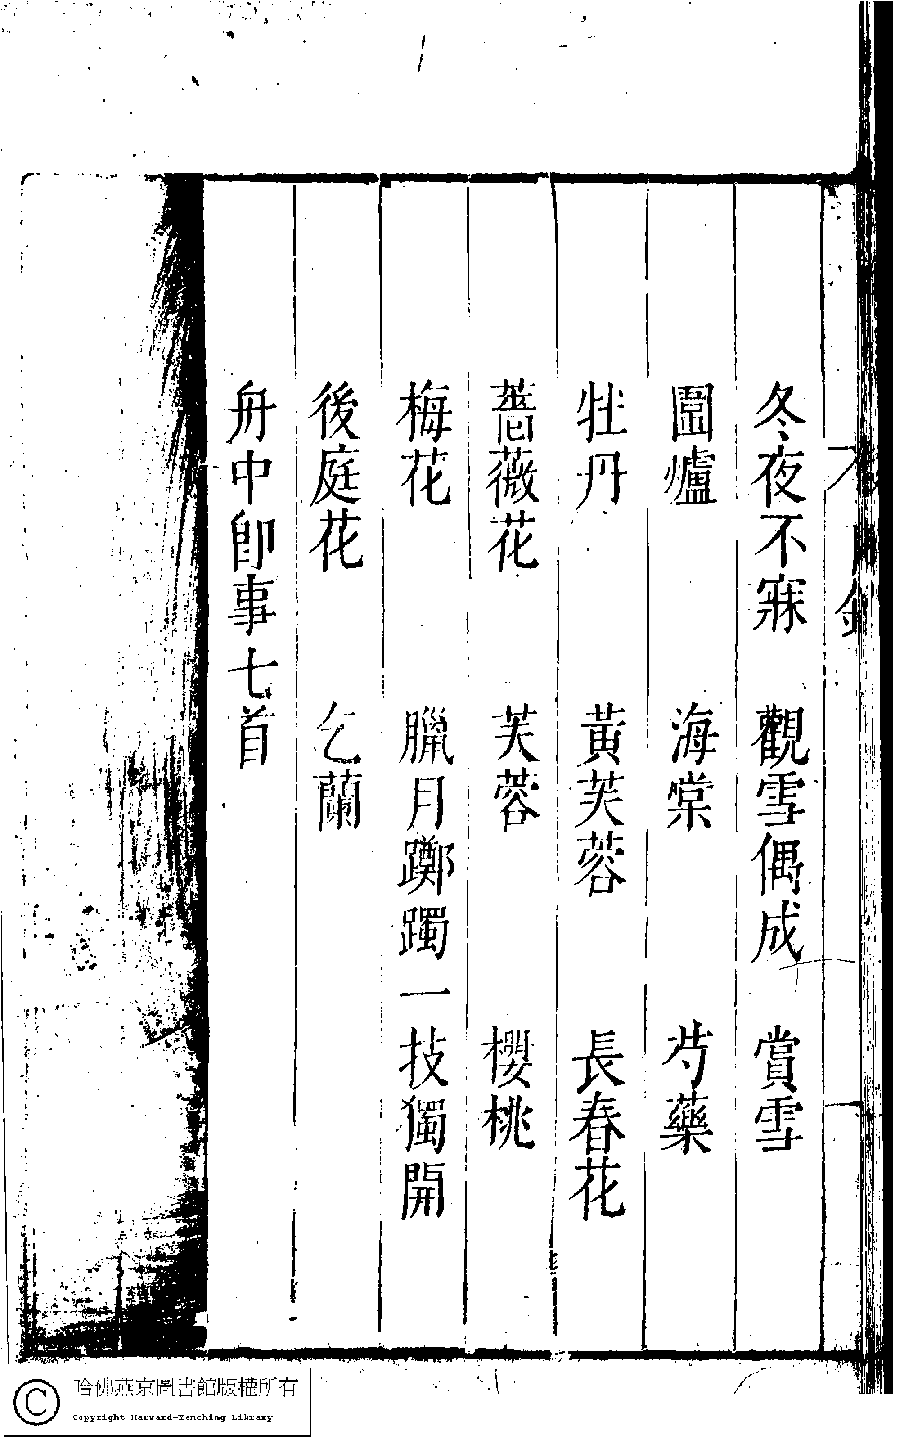 冬夜不寐 觀雪偶成 賞雪
圍爐 海棠 芍藥
牡丹 黃芙蓉 長春花
薔薇花 芙蓉 櫻桃
梅花 臘月躑躅一技獨開
後庭花 乞蘭
舟中卽事七首
哈佛燕京圖書館版權所有
Copyright Harvard-Yenching Library